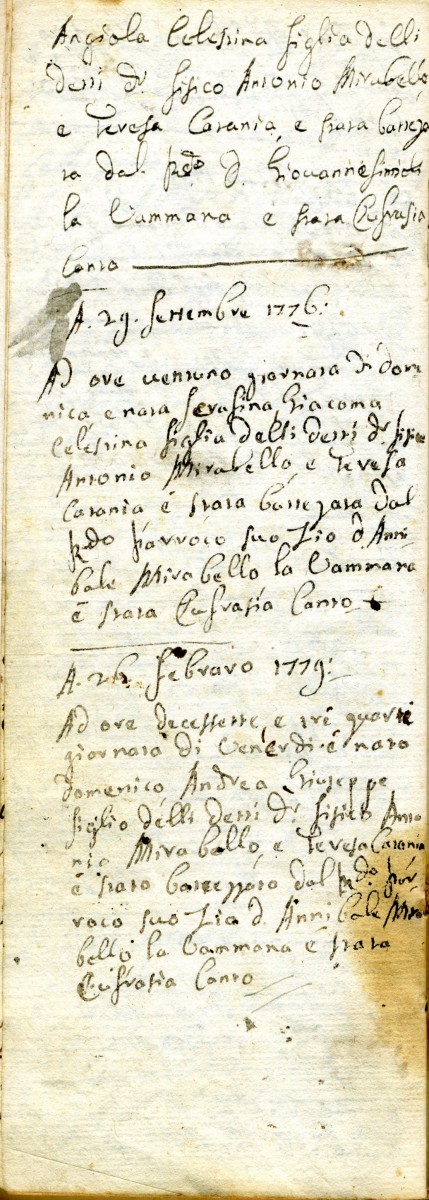 Angiola Celestina figlia delli
detti d.r fisico Antonio Mirabello
e Teresa Catania, e stata batteza
ta dal R.do D. Giovanne
la Vammana e stata Eufrasia
Canto
A. 29. settembre 1776:
Ad ore ventuno giornata di dome
nica e nata Serafina Giacoma
Celestina figlia delli detti d.r fisico
Antonio Mirabello, e Teresa
Catania é stata battezata dal
R.do Parroco suo Zio d. Anni
bale Mirabello la Vammana
é stata Eufrasia Canto
A. 26. Febraro 1779:
Ad ore decessette, e tré quarti
giornata di Venerdi é nato
Domenico Andrea Giuseppe
figlio delli detti d.r fisico Anto
nio Mirabello, e Teresa Catania
é stato battezzato dal R.do Par
roco suo Zio d. Annibale Mira
bello la Vammana é stata
Eufrasia Canto